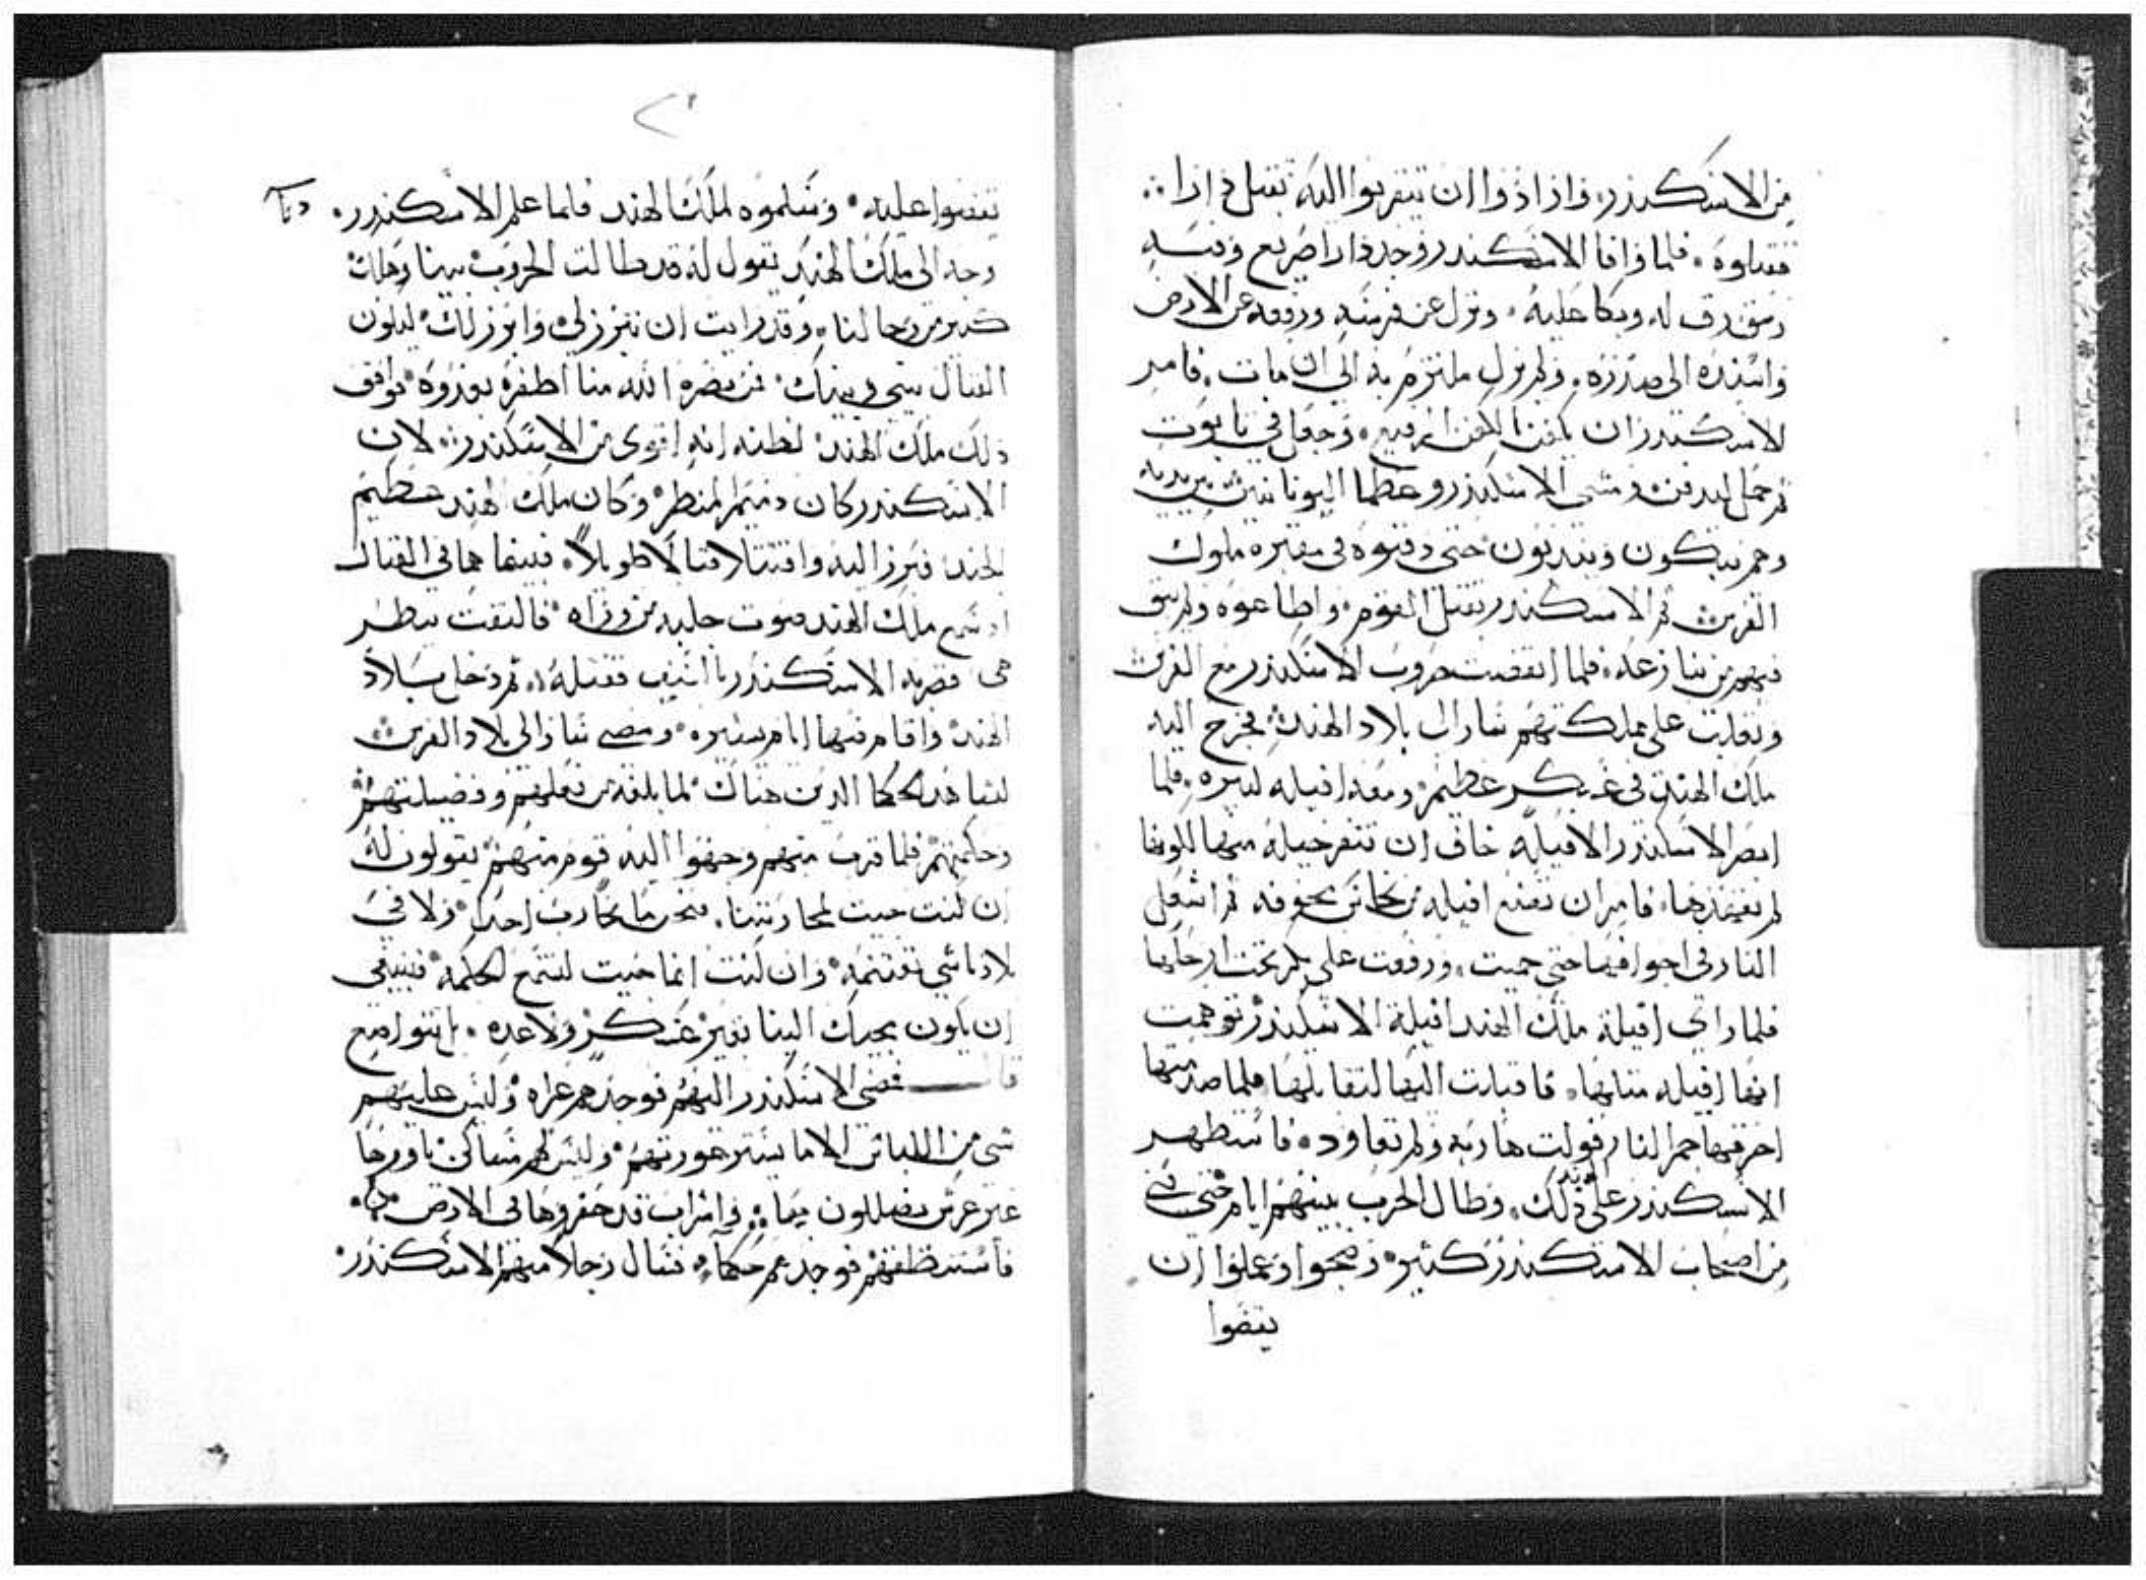 من الاسكندر، وارادوا ان يتقربوا اليه بقتل دارا ⁘
فقتلوه. فلما وافا الاسكندر وجد دارا صريع وفيه
رمق فرق له وبكا عليه. ونزل عن فرسه ورفعه عن الارض
واسنده الى صدره. ولم يزل ملتزم به الى ان مات. فامر
الاسكندر ان يكفن الكفن الرفيع. وجعل في تابوت
ثم حمل ليدفن ومشى الاسكندر وعظما اليونانيين بين يديه
وهم يبكون ويندبون حتى دفنوه في مقبره ملوك
الفرس ثم الاسكندر بقتل القوم واطاعوه ولم يبق
فيهم من ينازعه. فلما انقضت حروب الاسكندر مع الفرس
وتغلب على مملكتهم سار الى بلاد الهند. فخرج اليه
ملك الهند في عسكر عظيم ومعه افيله كثيره. فلما
ابصر الاسكندر الافيله خاف ان تنفر خيله منها لكونها
لم تعهدها. فامر ان تصنع افيله من نحاس مجوفه ثم اشعل
النار في اجوافها حتى حميت. ورفعت على بكر تحت ارجلها
فلما راى افيلة ملك الهند افيلة الاسكندر توهمت
انها افيله مثلها. فاقبلت اليها لتقابلها فلما صدمتها
احرقها حمر النار فولت هاربه ولم تعاود. فاستظهر
الاسكندر على ذلك. وطال الحرب بينهم ايام حتى فني
من اصحاب الاسكندر كثير. وضجوا وعملوا ان
يقبضوا
يقبضوا عليه. ويسلموه لملك الهند فلما علم الاسكندر. ذلك
وجه الى ملك الهند يقول له قد طالت الحروب بيننا وهلك
كثير من رجالنا. وقد رايت ان تبرز لي وابرز لك ليكون
القتال بيني وبينك. فمن نصره الله منا اظفره بعدوه فوافق
ذلك ملك الهند لظنه انه اقوى من الاسكندر. لان
الاسكندر كان دميم المنظر وكان ملك الهند عظيم
الجند فبرز اليه واقتتلا قتالا طويلاً. فبينما هما في القتال
اذ سمع ملك الهند صوت جلبه من وراه فالتفت ينظر
هي فضربه الاسكندر بالسيف فقتله. ثم دخل بلاد
الهند واقام فيها ايام يسيره ومضى سار الى بلاد الفرس
لمشاهدة الحكما الذين هناك لما بلغه من فعلهم وفضيلتهم
وحكمتهم فلما قرب منهم وجهوا اليه قوم منهم يقولون له
ان كنت جيت لمحاربتنا. فنحن ما نحارب احد ولا في
بلادنا شي تغتنمه وان كنت انما جيت لتسمع الحكمه فينبغي
ان يكون مجيك الينا بغير عسكر ولا عده. بالتواضع
قال فمضى الاسكندر اليهم فوجدهم عراه وليس عليهم
شي من اللباس الا ما يستر عورتهم وليس لهم مساكن ياووها
غير عرش يضللون بها. واسراب قد حفروها في الارض
فاستنطقهم فوجدهم حكما. فسال رجلا منهم الاسكندر